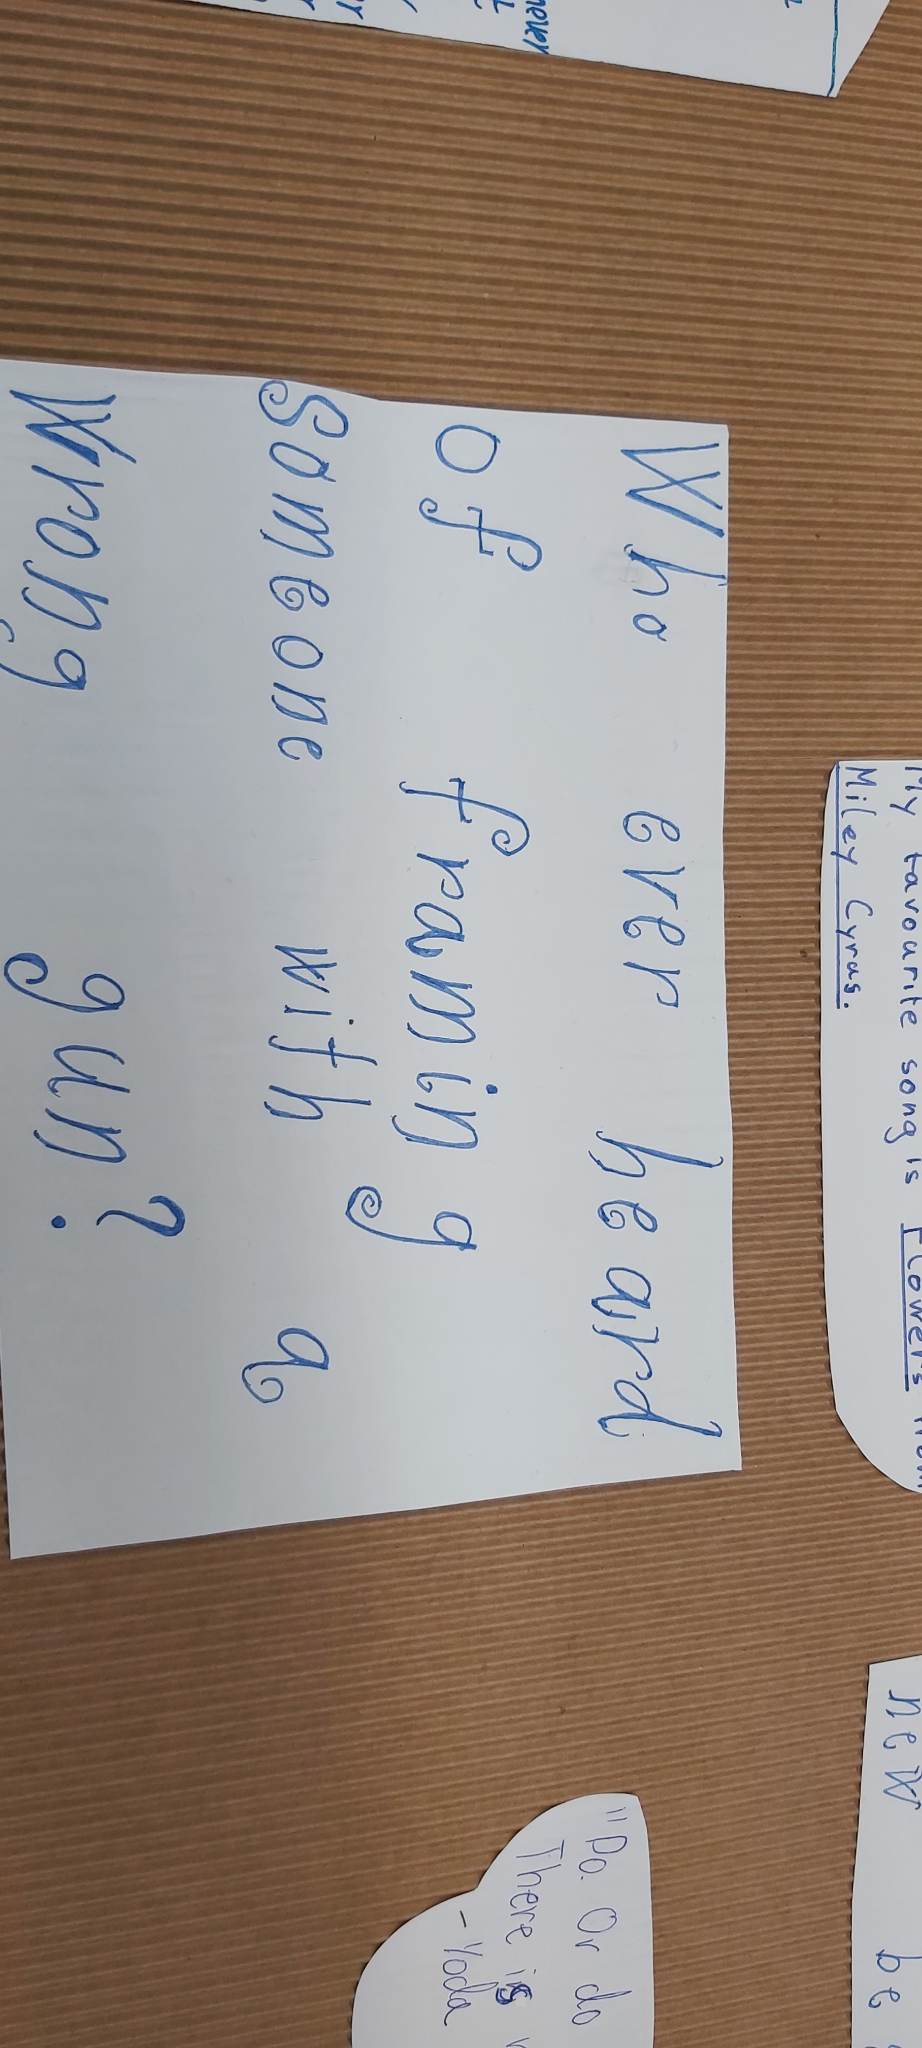 Who ever heard
of framing
Someone with a
Wrong gun?
My favourite song is Flowers from
Miley Cyrus.
new be
"Do. Or do
There is
- Yoda